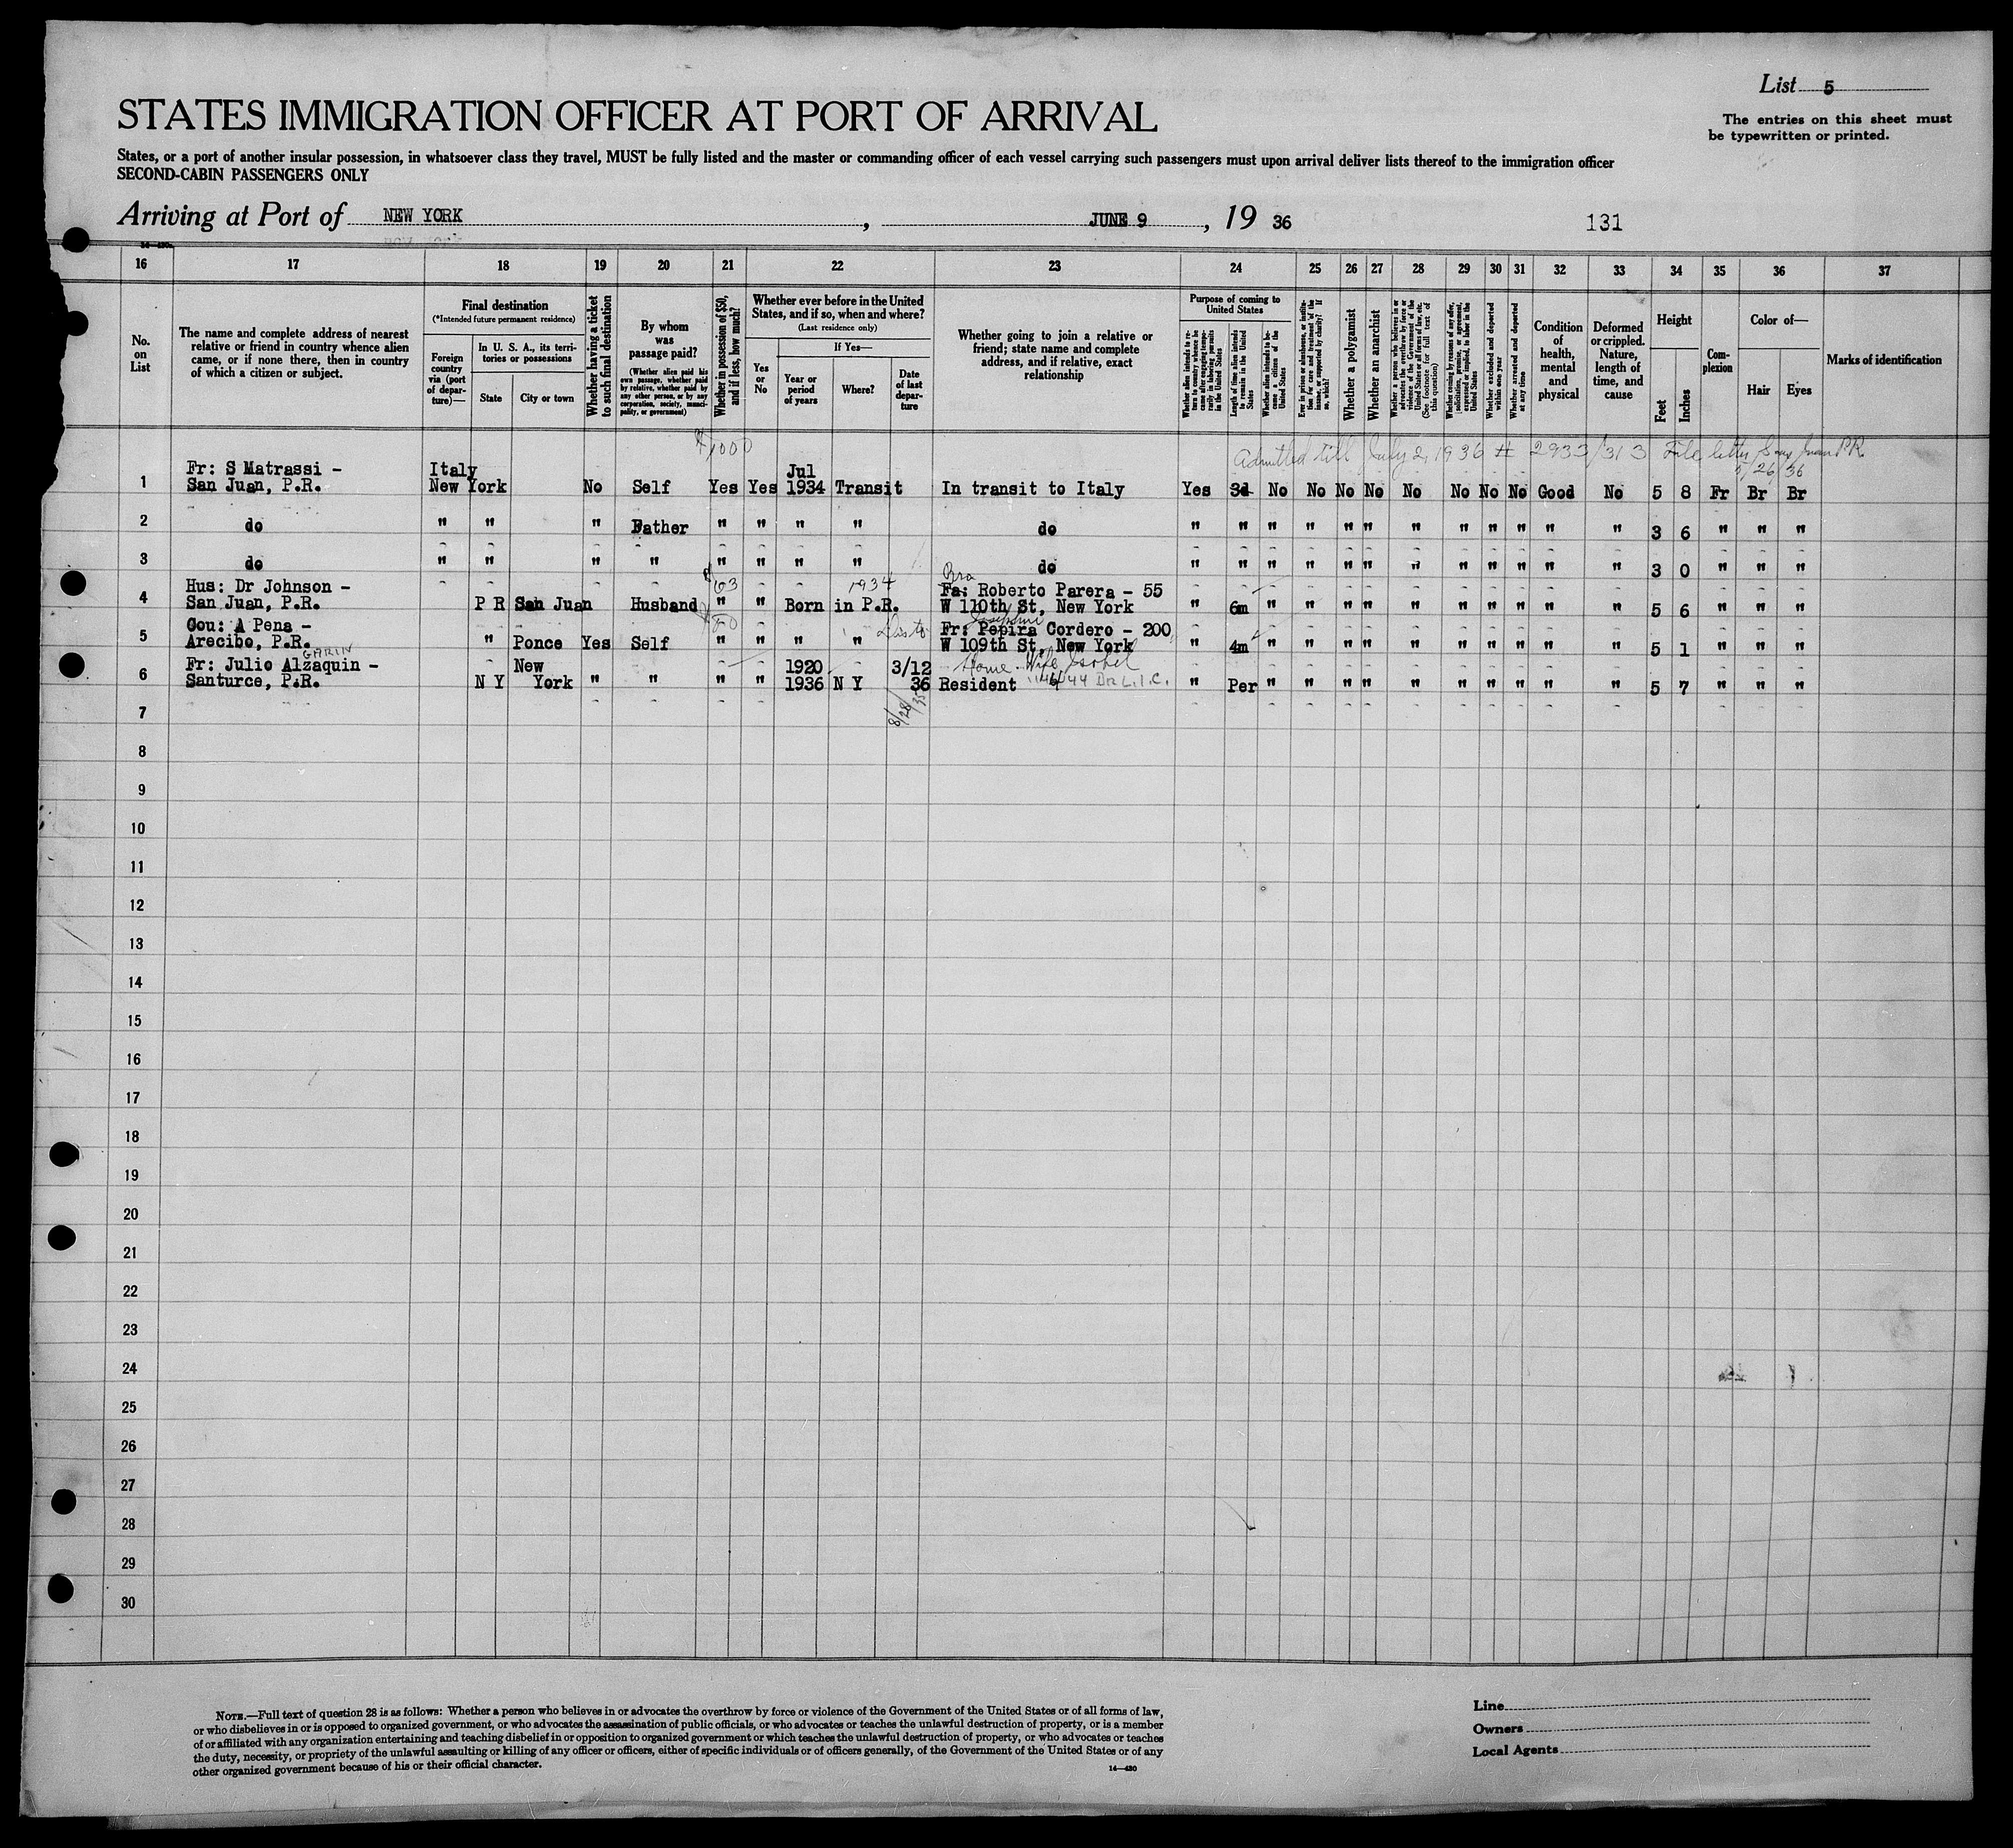 List 5
STATES IMMIGRATION OFFICER AT PORT OF ARRIVAL
The entries on this sheet must
be typewritten or printed.
States, or a port of another insular possession, in whatsoever class they travel, MUST be fully listed and the master or commanding officer of each vessel carrying such passengers must upon arrival deliver lists thereof to the immigration officer
SECOND-CABIN PASSENGERS ONLY
Arriving at Port of NEW YORK, JUNE 9, 19 36
131
16 17 18 19 20 21 22 23 24 25 26 27 28 29 30 31 32 33 34 35 36 37
No.
on
List
The name and complete address of nearest
relative or friend in country whence alien
came, or if none there, then in country
of which a citizen or subject.
Final destination
(*Intended future permanent residence)
Foreign
country
via (port
of depar-
ture)—
In U. S. A., its terri-
tories or possessions
State
City or town
Whether having a ticket
to such final destination
By whom
was
passage paid?
(Whether alien paid his
own passage, whether paid
by relative, whether paid by
any other person, or by any
corporation, society, munici-
pality, or government)
Whether in possession of $50,
and if less, how much?
Whether ever before in the United
States, and if so, when and where?
(Last residence only)
Yes
or
No
If Yes—
Year or
period
of years
Where?
Date
of last
depar-
ture
Whether going to join a relative or
friend; state name and complete
address, and if relative, exact
relationship
Purpose of coming to
United States
Whether alien intends to re-
turn to country whence he
came after engaging tempo-
rarily in laboring pursuits
in the United States
Length of time alien intends
to remain in the United
States
Whether alien intends to be-
come a citizen of the
United States
Ever in prison or almshouse, or institu-
tion for care and treatment of the
insane, or supported by charity? If
so, which?
Whether a polygamist
Whether an anarchist
Whether a person who believes in or
advocates the overthrow by force or
violence of the Government of the
United States or all forms of law, etc.
(See footnote for full text of
this question)
Whether coming by reasons of any offer,
solicitation, promise, or agreement,
expressed or implied, to labor in the
United States
Whether excluded and deported
within one year
Whether arrested and deported
at any time
Condition
of
health,
mental
and
physical
Deformed
or crippled.
Nature,
length of
time, and
cause
Height
Feet
Inches
Com-
plexion
Color of—
Hair
Eyes
Marks of identification
$1000
Admitted till July 2, 1936 # 2933/313 File letter San Juan PR
5/26/36
Fr: S Matrassi - Italy Jul
1 San Juan, P.R. New York No Self Yes Yes 1934 Transit In transit to Italy Yes 3d No No No No No No No No Good No 5 8 Fr Br Br
2 do " " " Father " " " " do " " " " " " " " " " " " 3 6 " " "
3 do " " " " " " " " do " " " " " " " " " " " " 3 0 " " "
Hus: Dr Johnson - 63 1934 Bro Fa: Roberto Parera - 55
4 San Juan, P.R. P R San Juan Husband " " Born in P.R. W 110th St, New York " 6m " " " " " " " " " " 5 6 " " "
Cou: A Pena - Fr: Pepira Cordero - 200
5 Arecibo, P.R. " Ponce Yes Self " " " " W 109th St, New York " 4m " " " " " " " " " " 5 1 " " "
GARIN
Fr: Julio Alzaquin - New 1920 3/12 Home. Wife Isobel
6 Santurce, P.R. N Y York " " " " 1936 N Y 36 Resident " Per " " " " " " " " " " 5 7 " " "
8/28/35
7
8
9
10
11
12
13
14
15
16
17
18
19
20
21
22
23
24
25
26
27
28
29
30
NOTE.—Full text of question 28 is as follows: Whether a person who believes in or advocates the overthrow by force or violence of the Government of the United States or of all forms of law,
or who disbelieves in or is opposed to organized government, or who advocates the assassination of public officials, or who advocates or teaches the unlawful destruction of property, or is a member
of or affiliated with any organization entertaining and teaching disbelief in or opposition to organized government or which teaches the unlawful destruction of property, or who advocates or teaches
the duty, necessity, or propriety of the unlawful assaulting or killing of any officer or officers, either of specific individuals or of officers generally, of the Government of the United States or of any
other organized government because of his or their official character.
14—430
Line
Owners
Local Agents